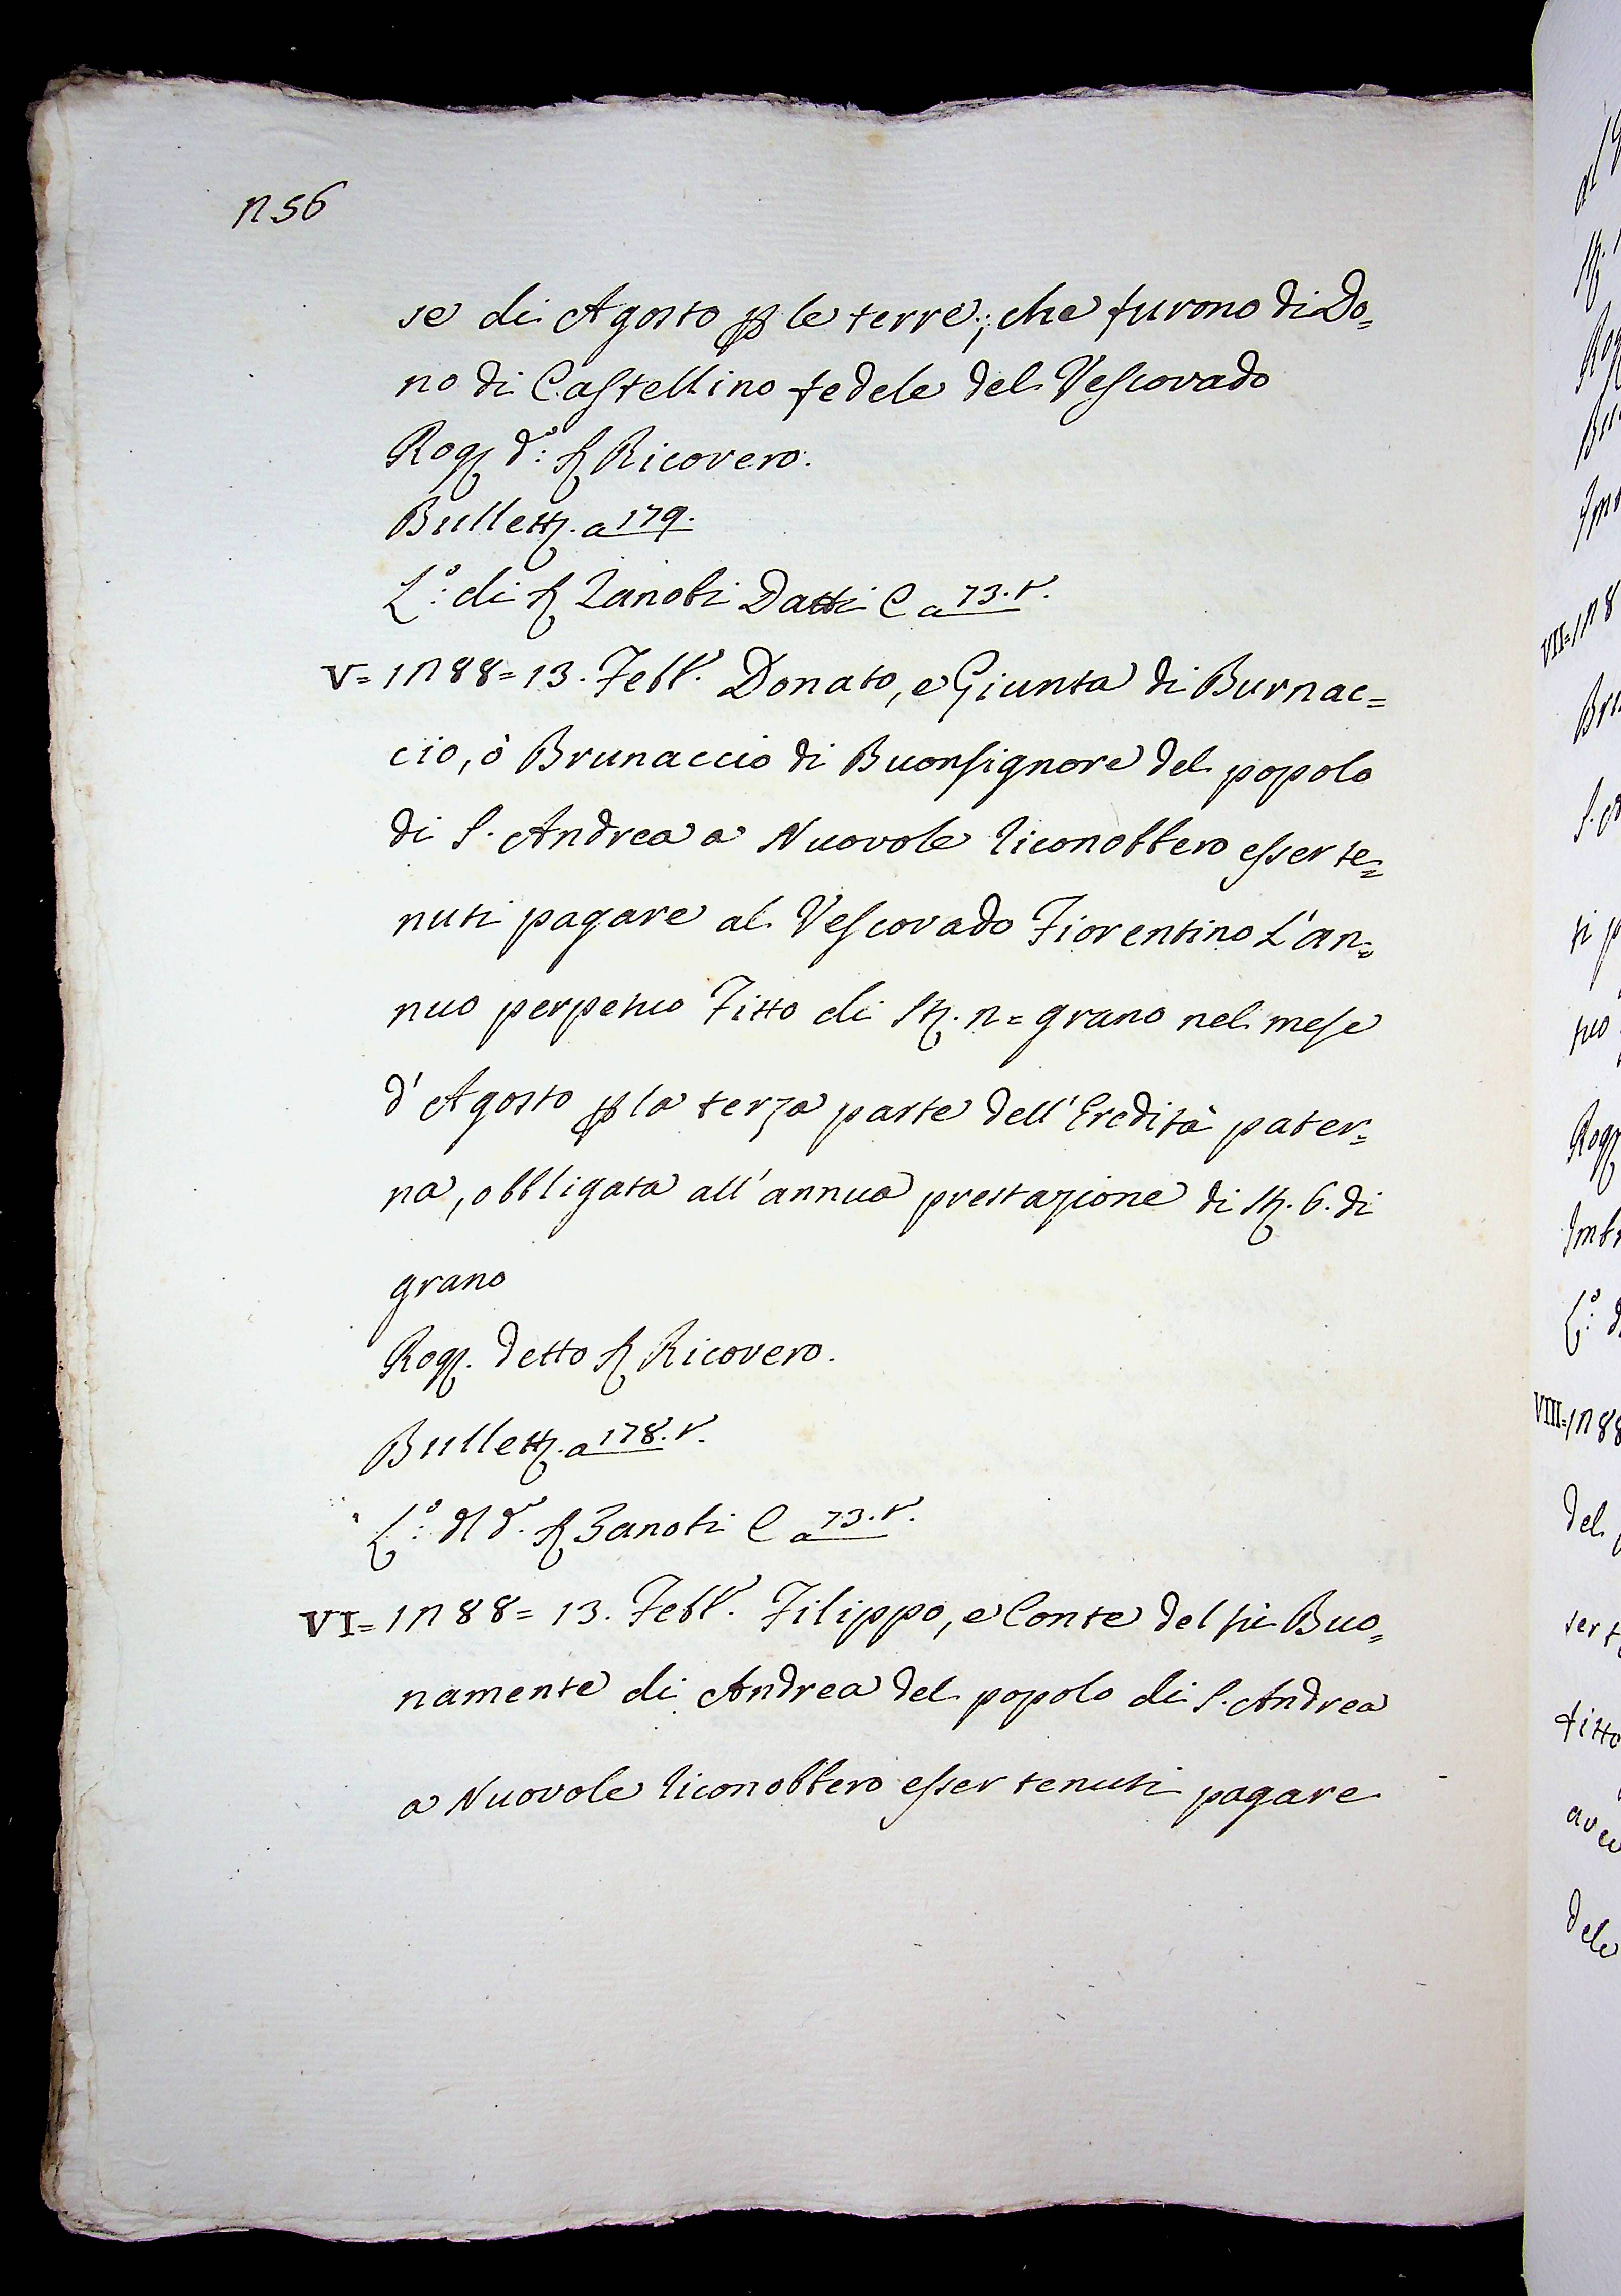 256
se di Agosto p le terre, che furono di Do=
no di Castellino fedele del Vescovado
Rog. d.º: S. Ricovero.
Bullett. a 179.
L.º: di S. Zanobi Datti C a 73. v.
V= 1288= 13. Febb.º Donato, e Giunta di Burnac=
cio, ò Brunaccio di Buonsignore del popolo
di S. Andrea a Nuovole riconobbero esser te=
nuti pagare al Vescovado Fiorentino l'an=
nuo perpetuo Fitto di St. 2= grano nel mese
d'Agosto p la terza parte dell'Eredità pater=
na, obbligata all'annua prestazione di St. 6. di
grano
Rog. detto S. Ricovero.
Bullett. a 178. v.
L.º: dl d.º S. Zanobi C a 73. v.
VI= 1288= 13. Febb.º Filippo, e Conte del fù Buo=
namente di Andrea del popolo di S. Andrea
a Nuovole riconobbero esser tenuti pagare